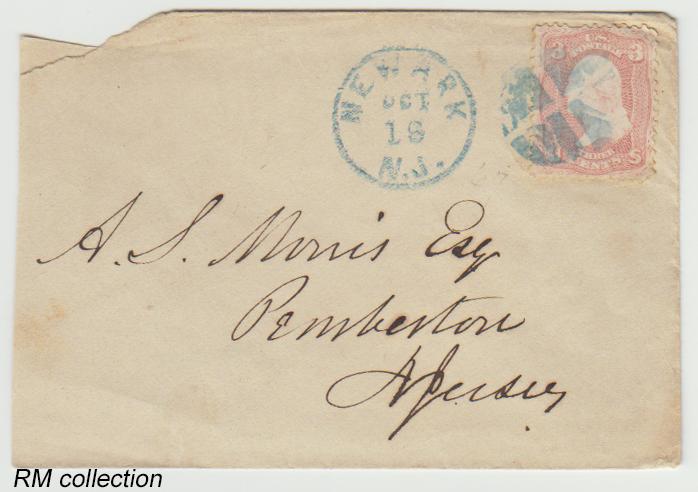 NEWARK
OCT
18
N.J.
3 U.S. 3
POSTAGE
THREE
CENTS
A. S. Morris Esq
Pemberton
N Jersey
RM collection